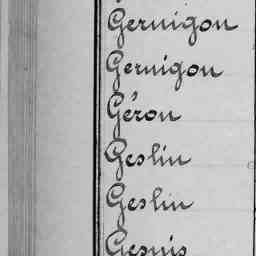 Gernigon
Gernigon
Géron
Geslin
Geslin
Gesnis